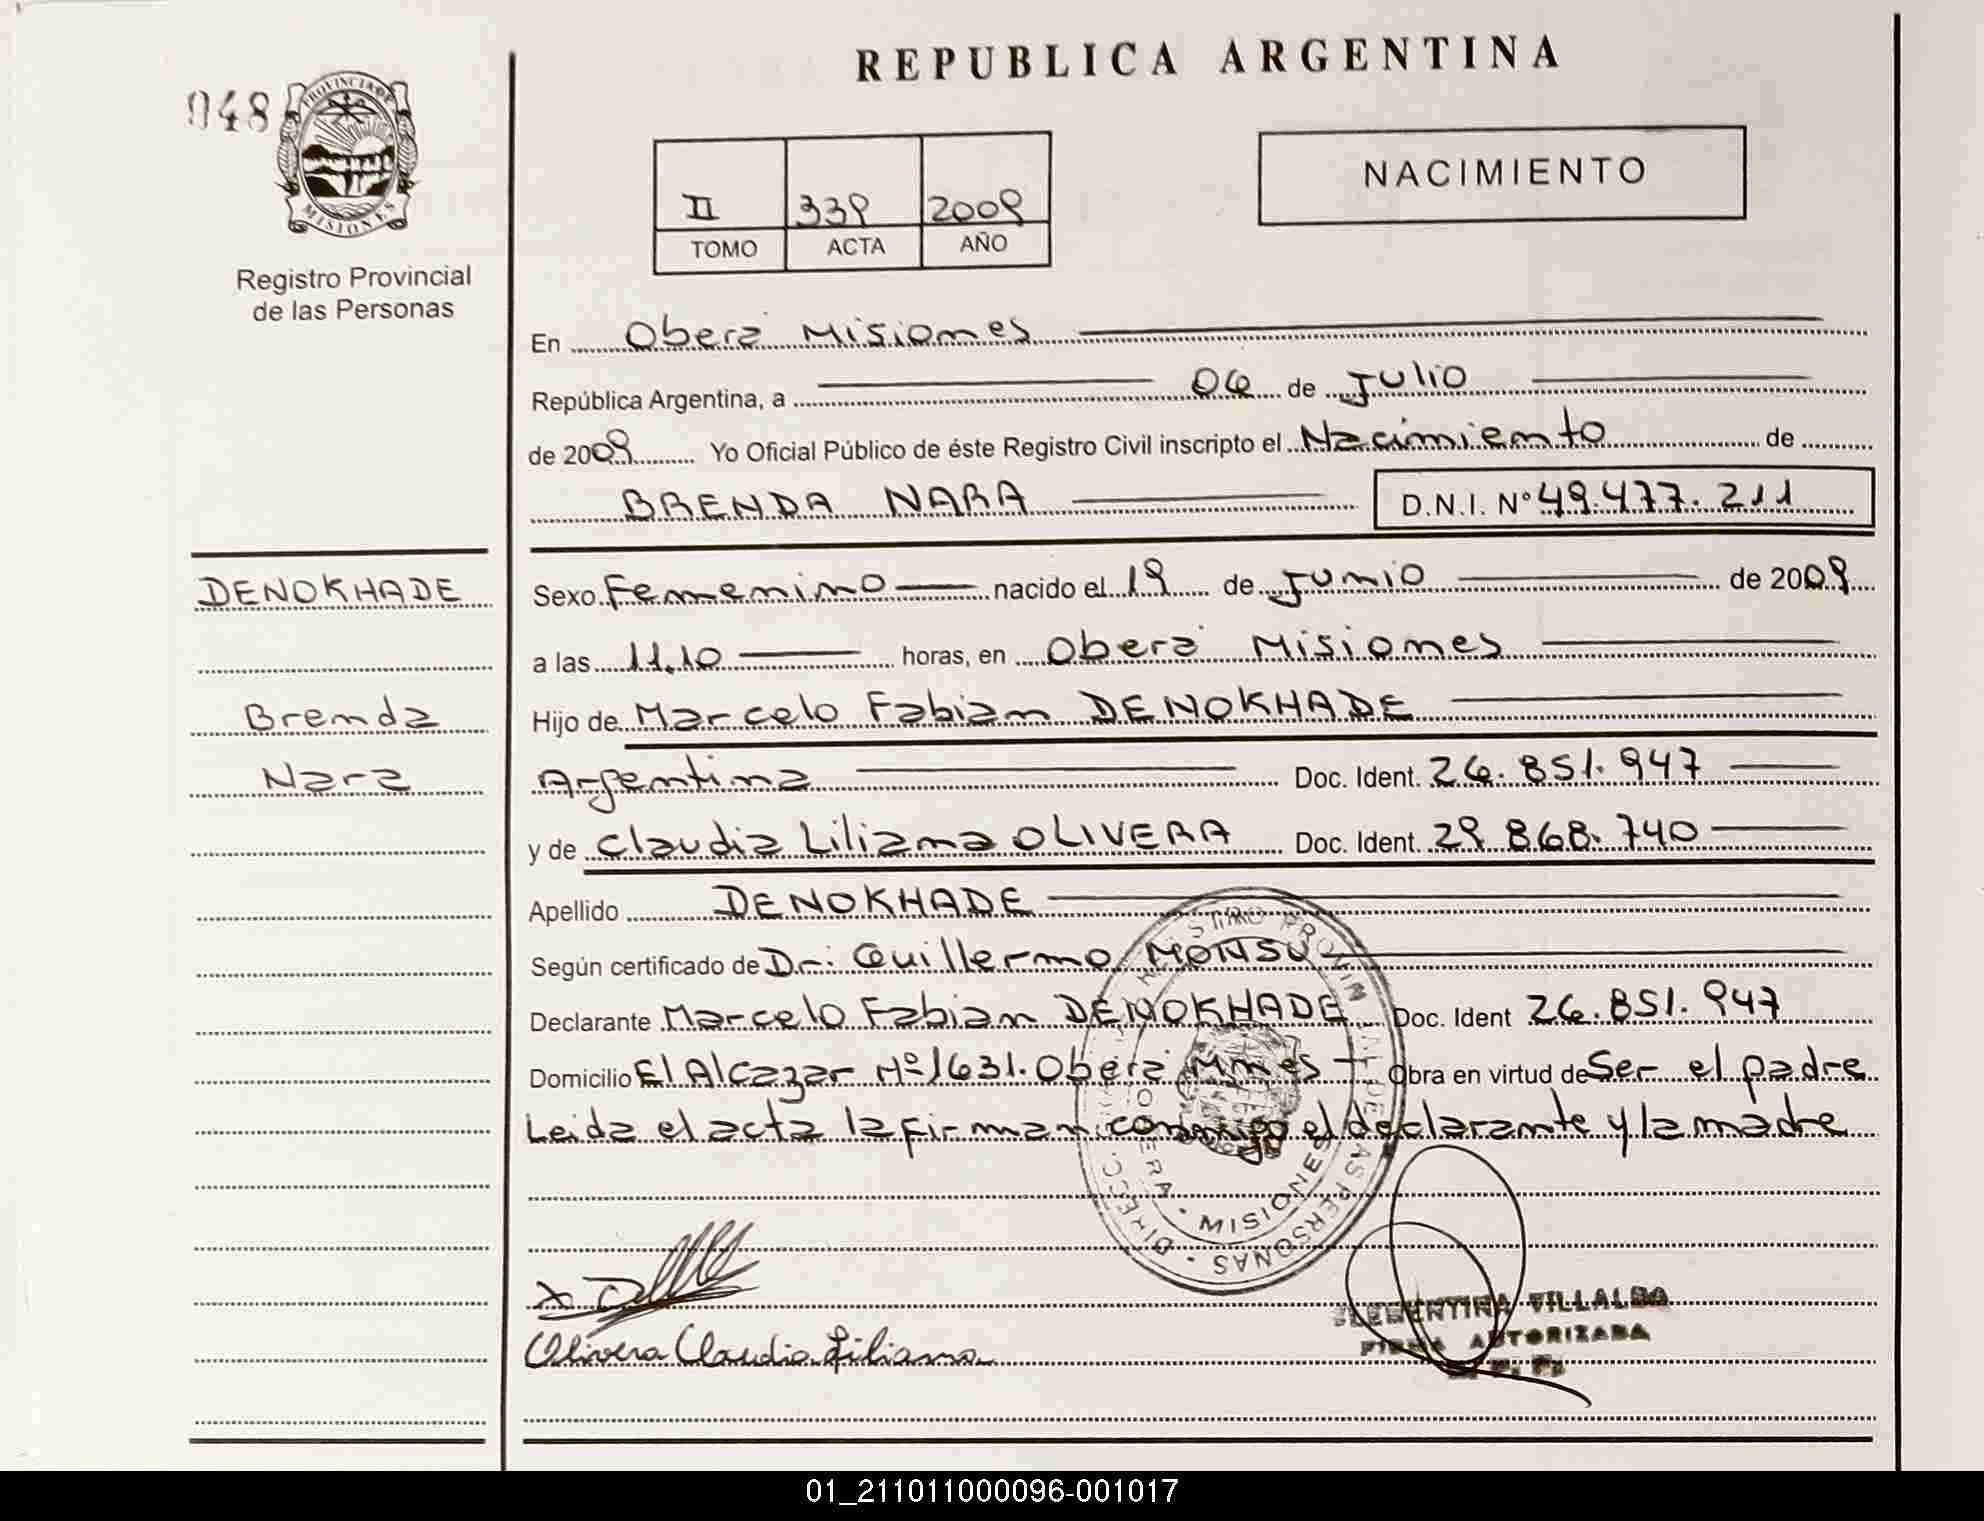 REPUBLICA ARGENTINA
048
PROVINCIA DE
MISIONES
Registro Provincial
de las Personas
NACIMIENTO
II 339 2009
TOMO ACTA AÑO
En Oberá Misiones
República Argentina, a 06 de Julio
de 2009 Yo Oficial Público de éste Registro Civil inscripto el Nacimiento de
BRENDA NARA D.N.I. Nº 49.477.211
DENOKHADE
Brenda
Nara
Sexo Femenino nacido el 19 de Junio de 2009
a las 11.10 horas, en Oberá Misiones
Hijo de Marcelo Fabian DENOKHADE
Argentina Doc. Ident. 26.851.947
y de Claudia Liliana OLIVERA Doc. Ident. 29.868.740
Apellido DENOKHADE
Según certificado de Dr: Guillermo MONSU
Declarante Marcelo Fabian DENOKHADE Doc. Ident 26.851.947
Domicilio El Alcazar Nº 1631. Oberá Mnes Obra en virtud de Ser el padre
Leida el acta la firman conmigo el declarante y la madre
MISIONES
Olivera Claudia Liliana
CLEMENTINA VILLALBA
FIRMA AUTORIZADA
01_211011000096-001017